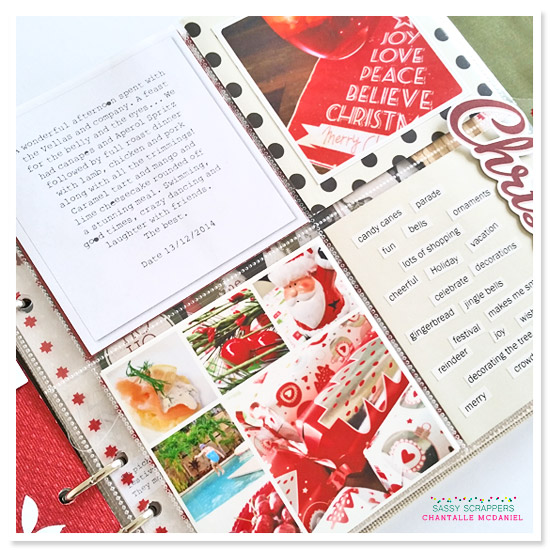 A wonderful afternoon spent with
the Vellas and company. A feast
for the belly and the eyes... We
had canapes and Aperol Spritz
followed by full roast dinner
with lamb, chicken and pork
along with all the trimmings!
Caramel tart and mango and
lime cheesecake rounded off
a stunning meal. Swimming,
good times, crazy dancing and
laughter with friends.
The best.
Date 13/12/2014
JOY
LOVE
PEACE
BELIEVE
CHRISTMA
Merry
Chris
candy canes
parade
ornaments
fun
bells
lots of shopping
vacation
cheerful
Holiday
decorations
celebrate
jingle bells
gingerbread
makes me sm
festival
joy
wish
reindeer
decorating the tree
crow
merry
SASSY SCRAPPERS
CHANTALLE MCDANIEL